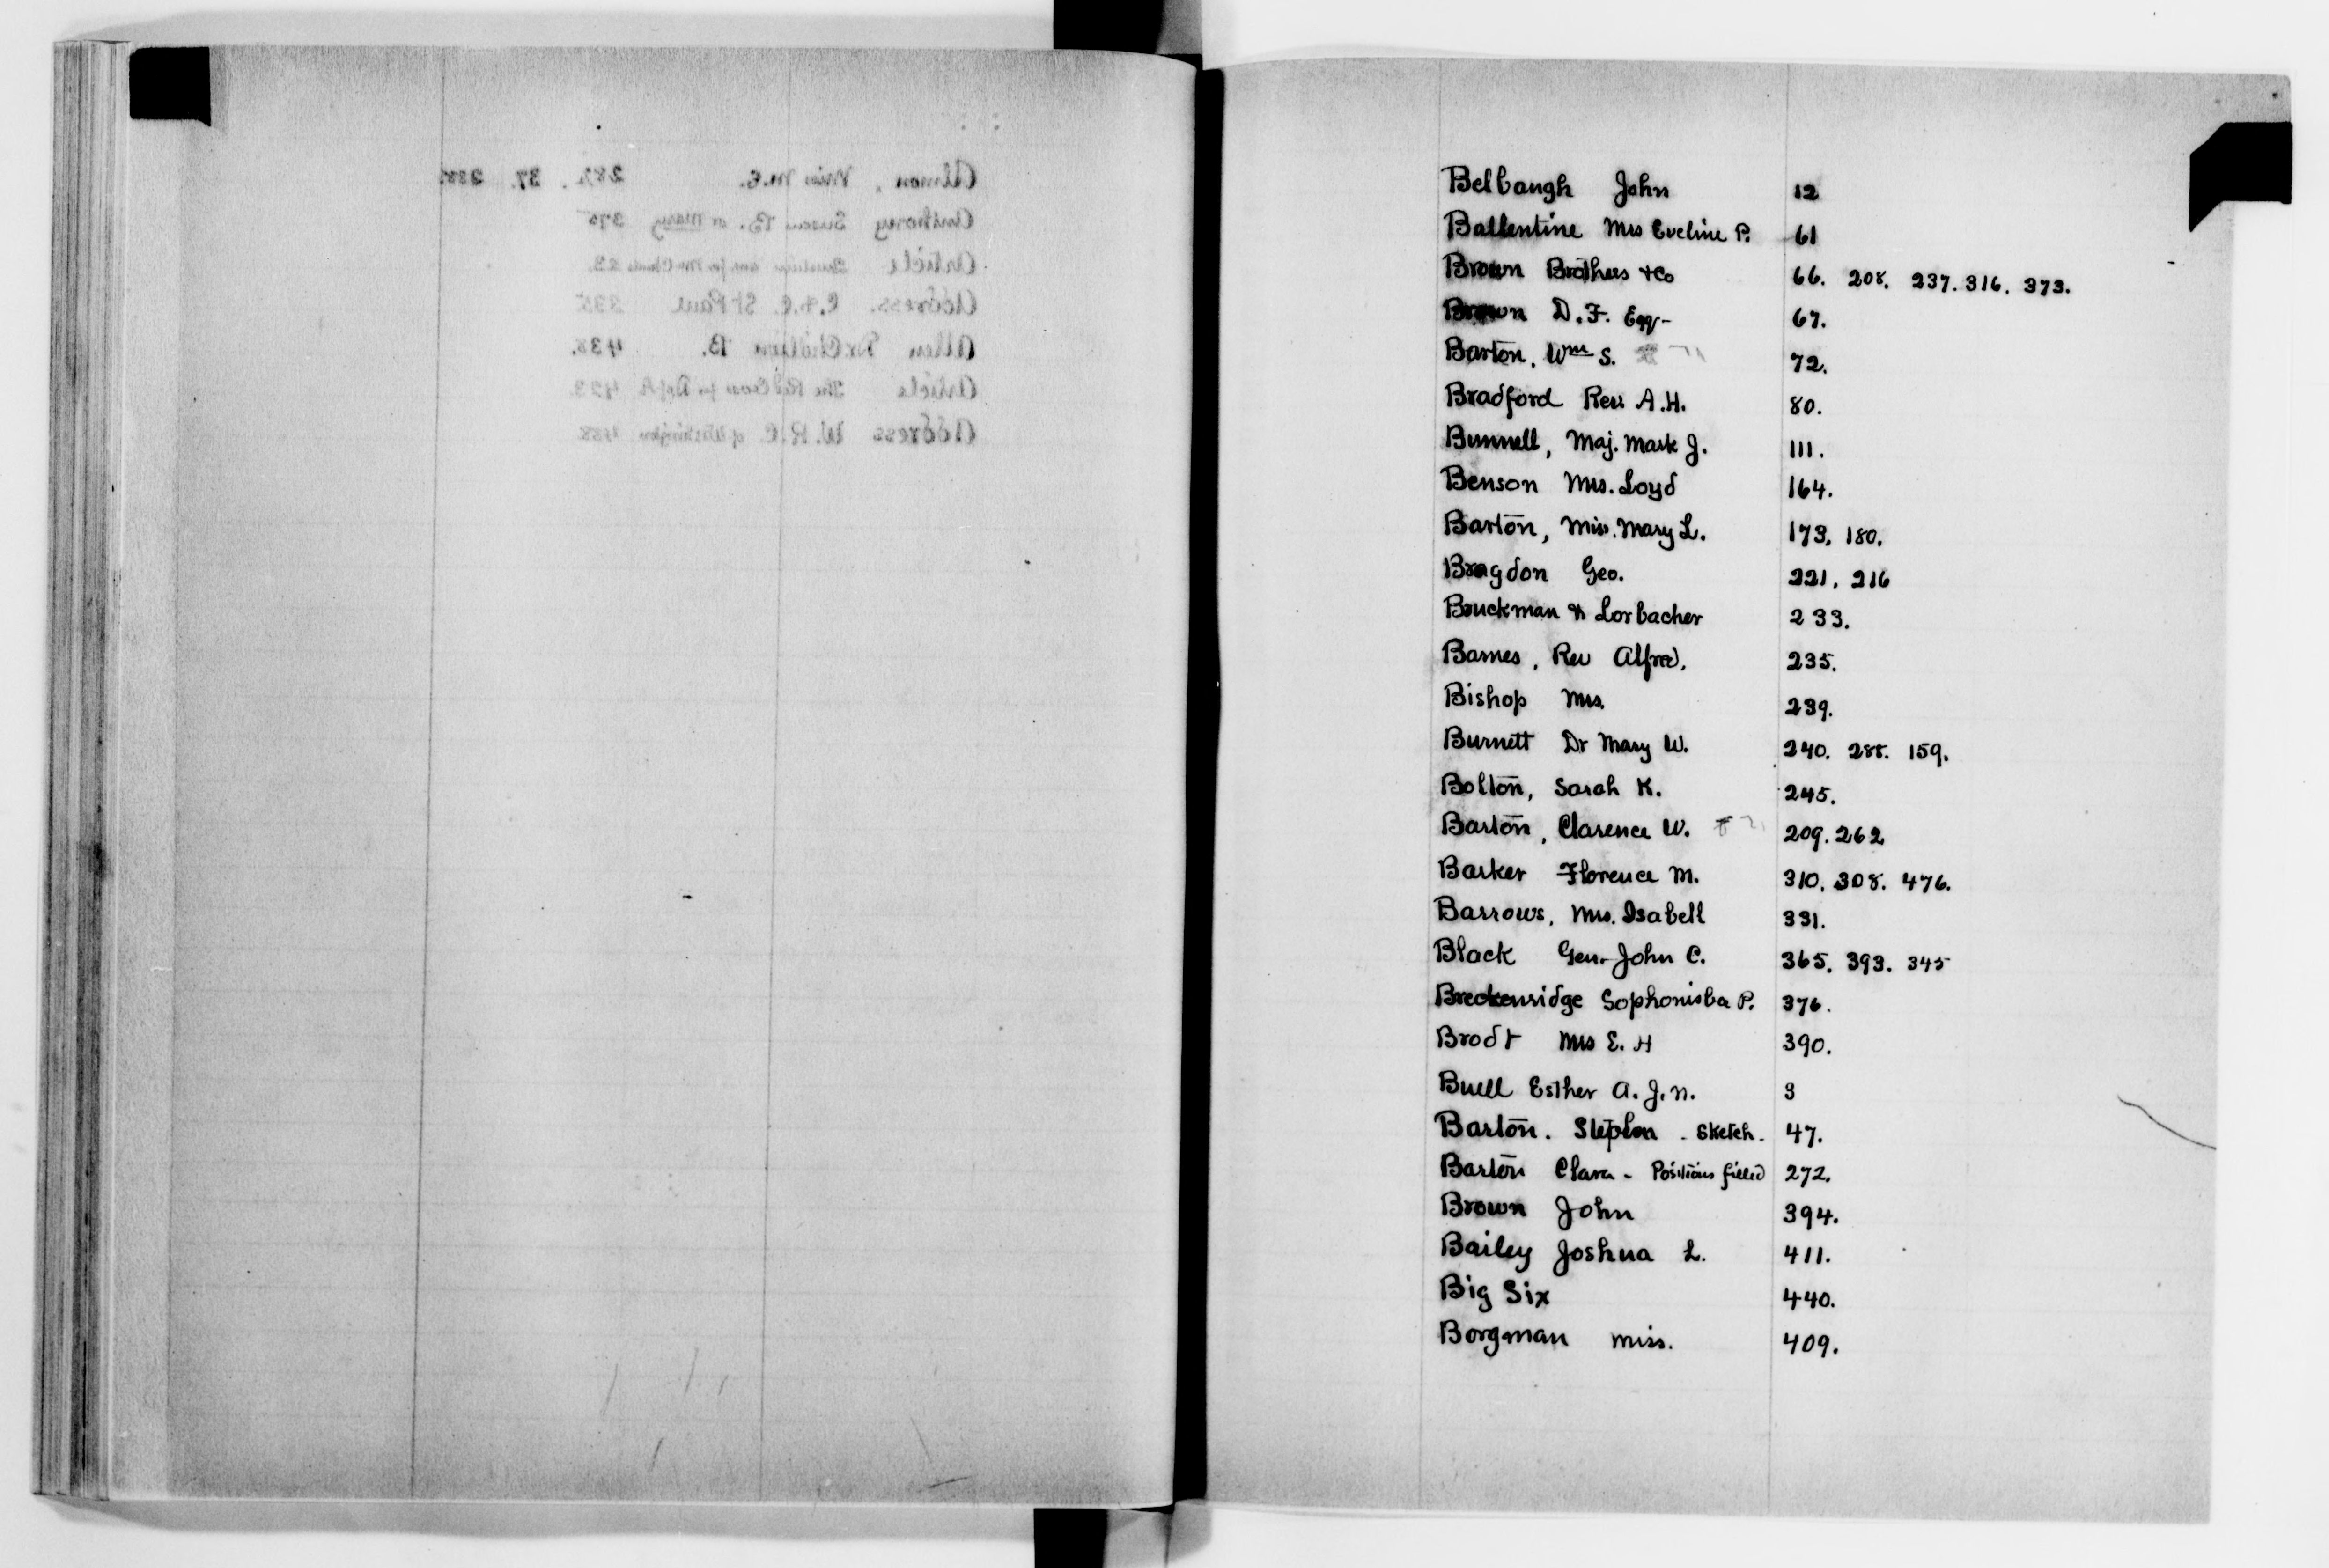 Almon, Miss M.E. 287. 37. 288.
Anthony Susan B. or Mary 375
Article
Address. St Paul 335
Allen Dr. B. 438.
Article The Red Cross for 423
Address W.R.C. of Washington 488
Belbaugh John 12
Ballentine Mrs Eveline P. 61
Brown Brothers + Co 66. 208. 237. 316. 373.
Brown D.F. Esqr- 67.
Barton, Wm S. 72.
Bradford Rev A.H. 80.
Bunnell, Maj. Mark J. 111.
Benson Mrs. Loyd 164.
Barton, Miss. Mary L. 173, 180.
Bragdon Geo. 221, 216
Bruckman & Lorbacher 233.
Barnes, Rev Alfred. 235.
Bishop Mrs. 239.
Burnett Dr Mary W. 240. 288. 159.
Bolton, Sarah K. 245.
Barton, Clarence W. 209. 262
Barker Florence M. 310. 308. 476.
Barrows, Mrs. Isabell 331.
Black Gen. John C. 365. 393. 345
Breckenridge Sophonisba P. 376.
Brodt Mrs E. H 390.
Buell Esther A. J. N. 3
Barton. Stephen - Sketch. 47.
Barton Clara - Positions filled 272.
Brown John 394.
Bailey Joshua L. 411.
Big Six 440.
Borgman Miss. 409.